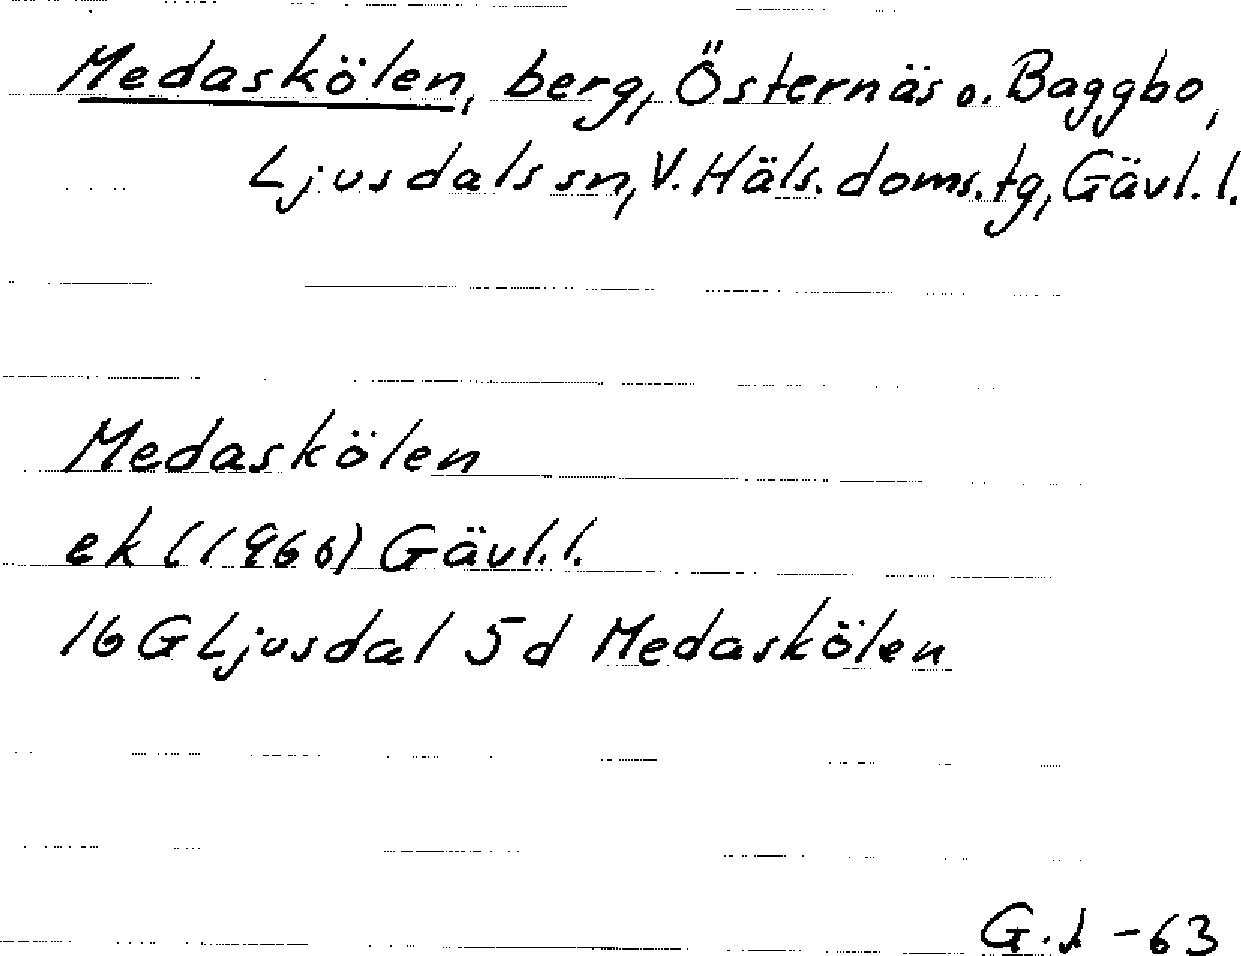 Medaskölen, berg, Österнäs o. Baggbo,
Ljusdals sn, V. Häls. doms.tg, Gävl. l.
Medaskölen
ek (1960) Gävl. l.
16 G Ljusdal 5 d Medaskölen
-63